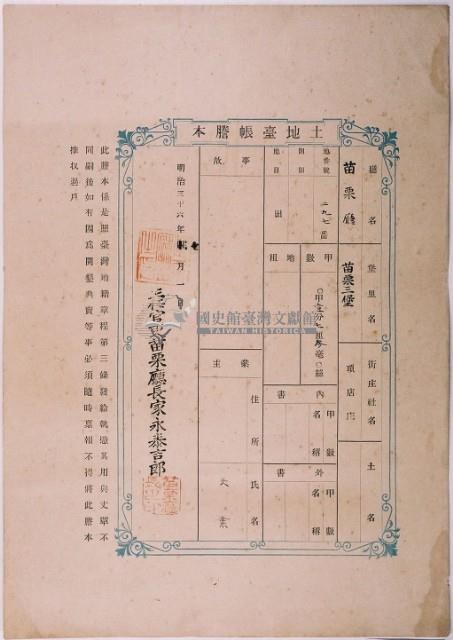 土地臺帳謄本
廳名
苗栗廳
堡里名
苗栗三堡
街庄社名
土名
地番號
二九七番
地目
田
甲數
〇甲壹分七厘
地租
內書
甲數
名稱
外書
甲數
名稱
事故
業主
住所
氏名
明治三十六年
月
苗栗廳長家永泰吉郎
此謄本係是照臺灣地籍章程第三條發給執憑其用與丈單不
同嗣後如有因為開墾典賣等事必須隨時稟報不得將此謄本
推收過戶
國史館臺灣文獻館
TAIWAN HISTORICA